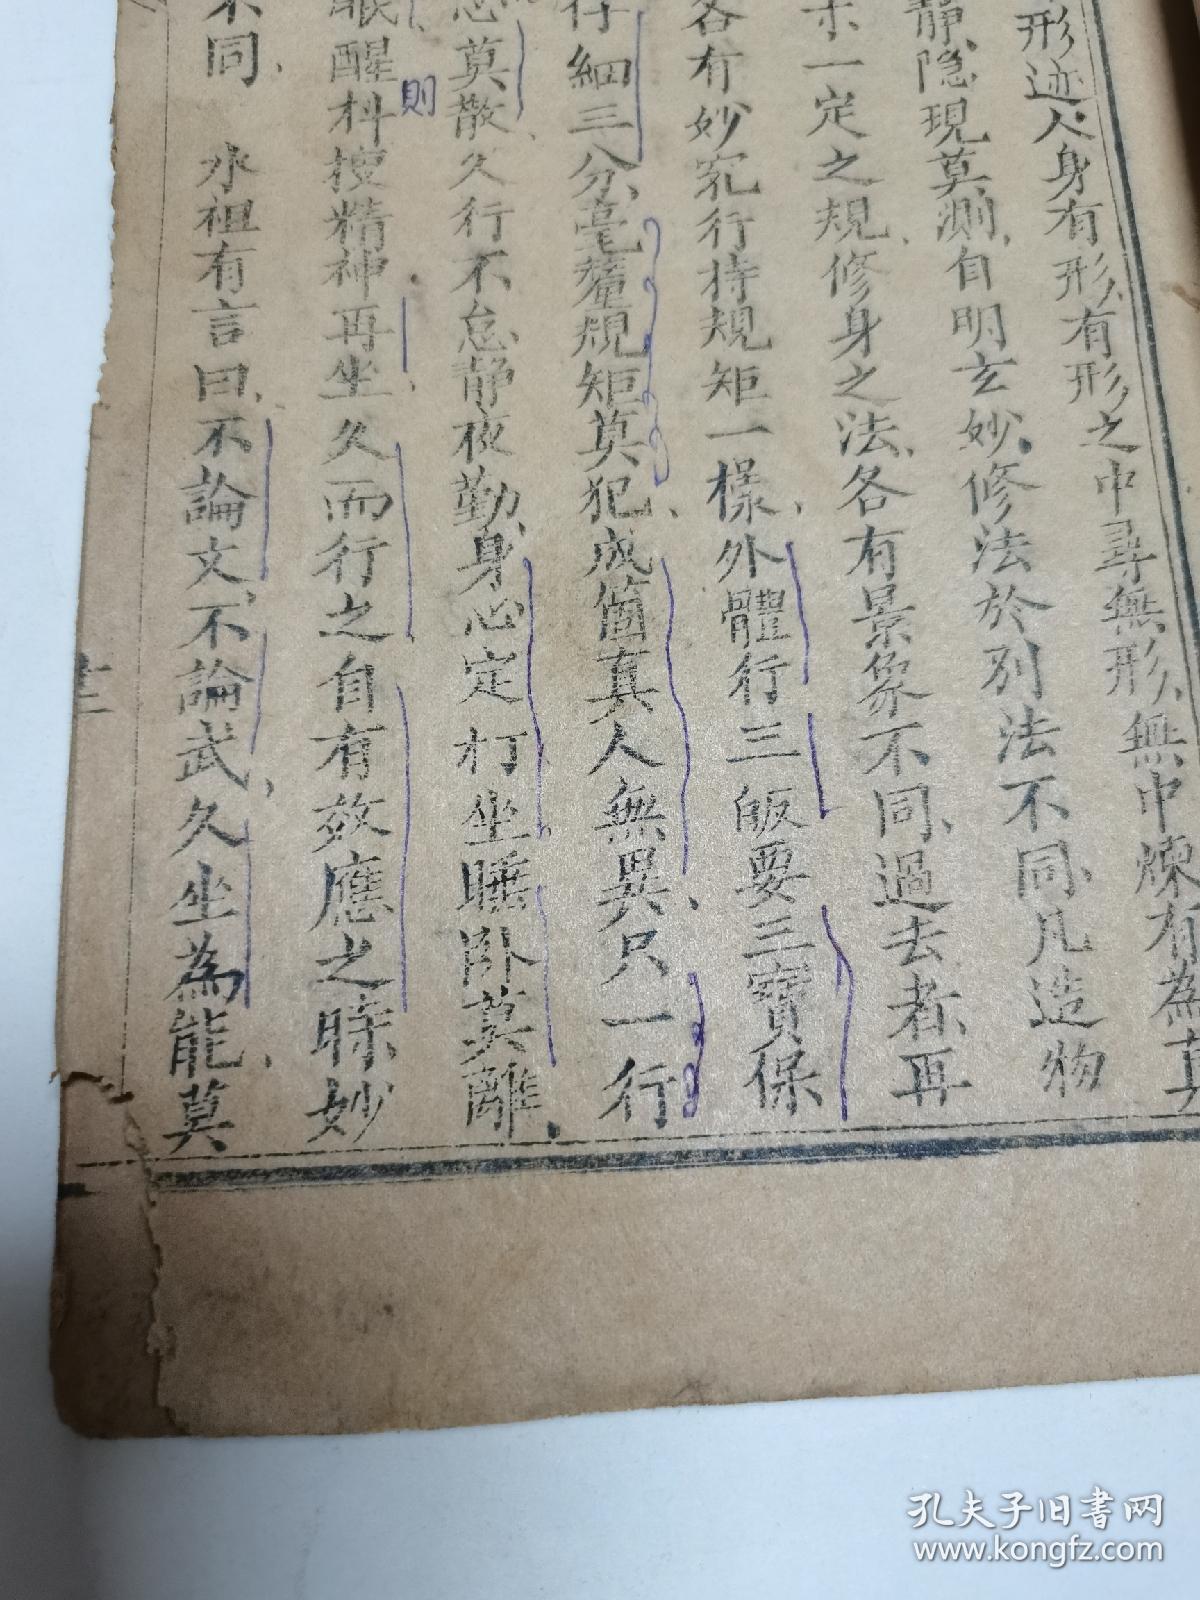 形迹人身有形、有形之中尋無形、無中煉有為真
靜、隐現莫測、自明玄妙、修法於列法不同、凡造物
一定之規、修身之法、各有景象不同、過去者、再
各有妙究行持規矩一樣、外體行三皈要三寶保
仔細三分、毫釐規矩莫犯、成箇真人無異、只一行
莫散、久行不怠、静夜勤、身心定、打坐睡卧莫離、
眠醒抖搜精神再坐、久而行之、自有效應之時、妙
則
不同、 水祖有言曰、不論文、不論武、久坐為能、莫
十二
孔夫子旧书网
www.kongfz.com